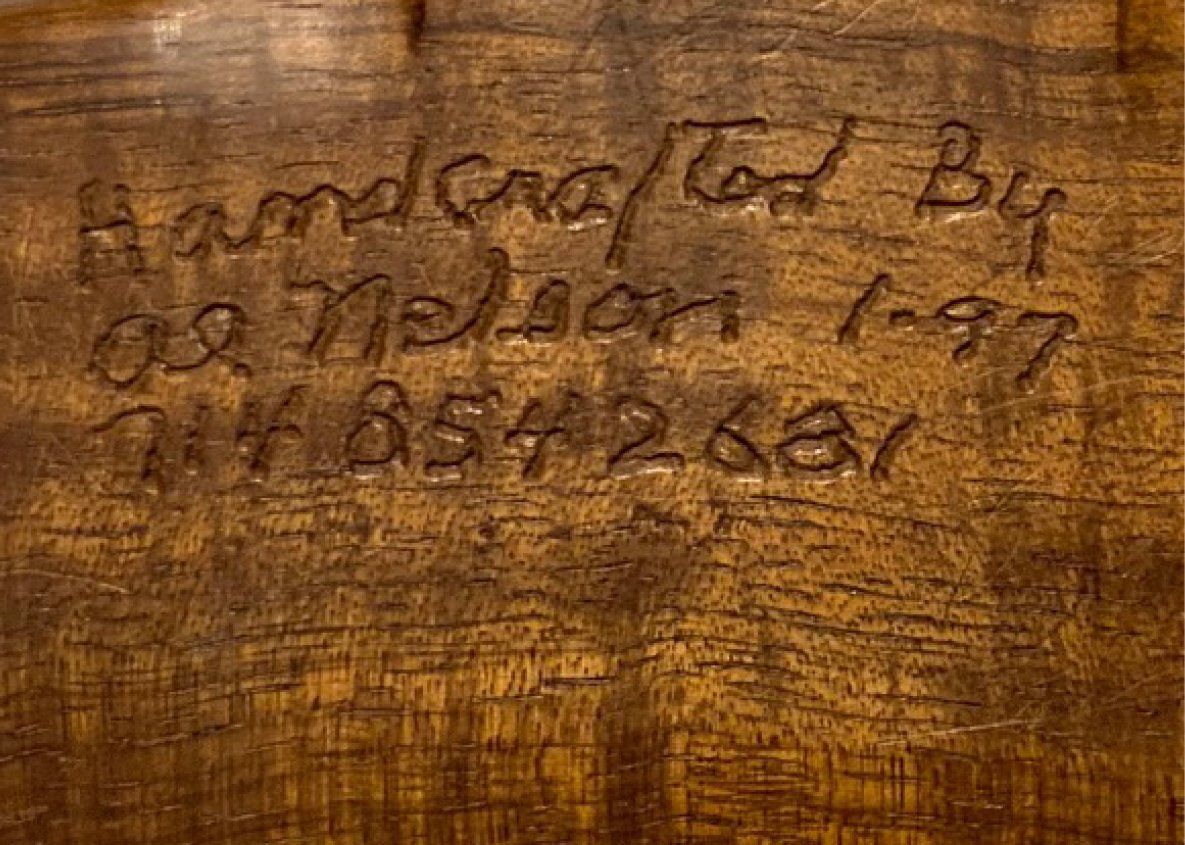 Handcrafted By
al Nelson 1-97
714 8542681